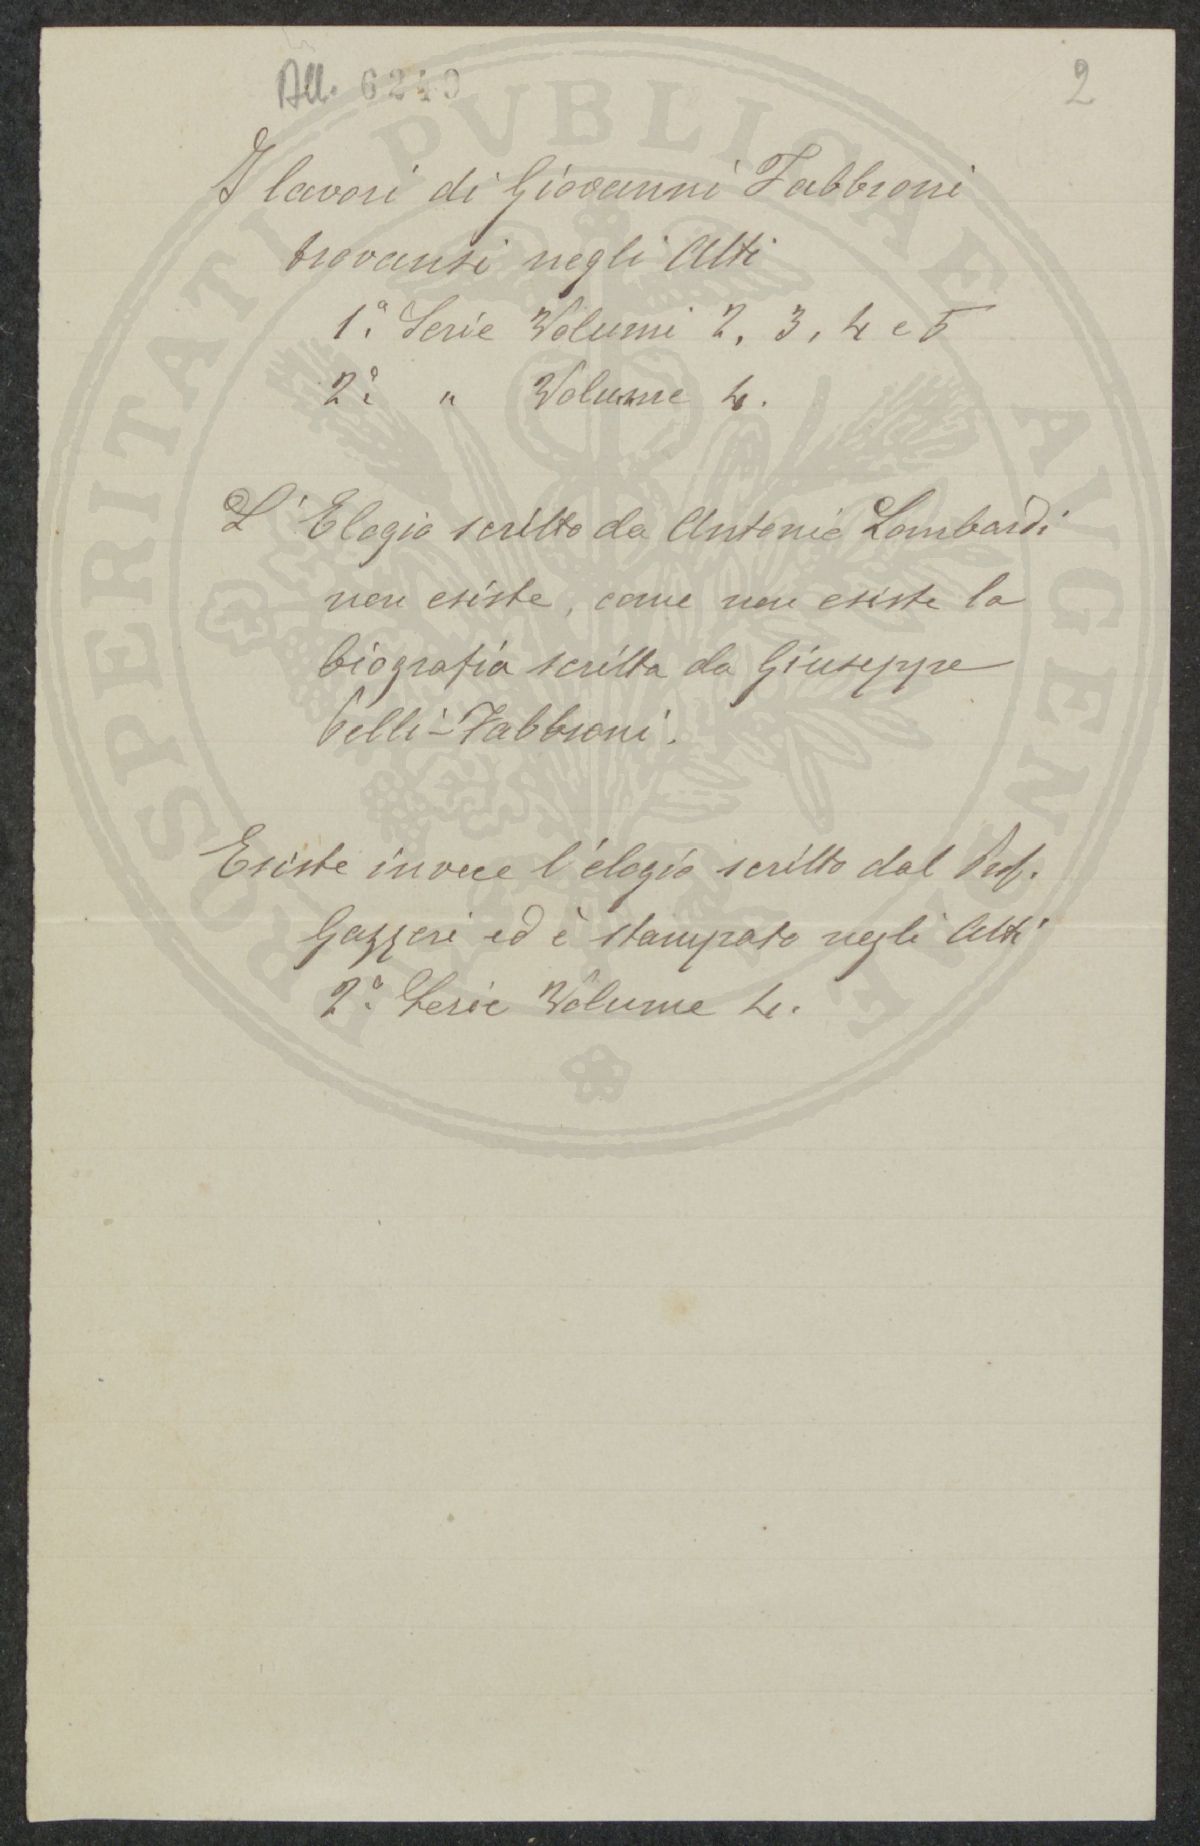 All. 6249
2
I lavori di Giovanni Fabbroni
trovansi negli Atti
1ª. Serie Volumi 2, 3, 4 e 5
2ª. " Volume 4.
L'Elogio scritto da Antonio Lombardi
non esiste, come non esiste la
biografia scritta da Giuseppe
Pelli-Fabbroni.
Esiste invece l'elogio scritto dal Prof.
Gazzeri ed è stampato negli Atti
2ª. Serie Volume 4.
PROSPERITATI PVBLICAE AVGENDAE